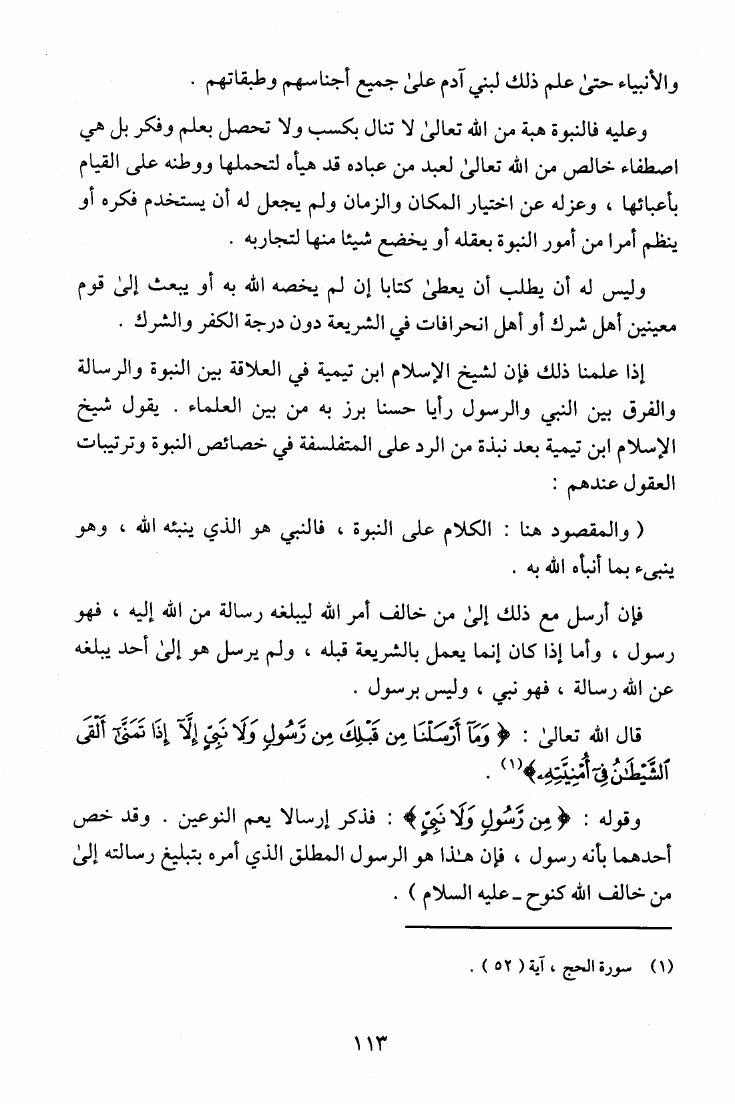 والأنبياء حتىٰ علم ذلك لبني آدم علىٰ جميع أجناسهم وطبقاتهم .
وعليه فالنبوة هبة من الله تعالىٰ لا تنال بكسب ولا تحصل بعلم وفكر بل هي
اصطفاء خالص من الله تعالىٰ لعبد من عباده قد هيأه لتحملها ووطنه على القيام
بأعبائها ، وعزله عن اختيار المكان والزمان ولم يجعل له أن يستخدم فكره أو
ينظم أمرا من أمور النبوة بعقله أو يخضع شيئا منها لتجاربه .
وليس له أن يطلب أن يعطىٰ كتابا إن لم يخصه الله به أو يبعث إلىٰ قوم
معينين أهل شرك أو أهل انحرافات في الشريعة دون درجة الكفر والشرك .
إذا علمنا ذلك فإن لشيخ الإسلام ابن تيمية في العلاقة بين النبوة والرسالة
والفرق بين النبي والرسول رأيا حسنا برز به من بين العلماء . يقول شيخ
الإسلام ابن تيمية بعد نبذة من الرد على المتفلسفة في خصائص النبوة وترتيبات
العقول عندهم :
( والمقصود هنا : الكلام على النبوة ، فالنبي هو الذي ينبئه الله ، وهو
ينبىء بما أنبأه الله به .
فإن أرسل مع ذلك إلىٰ من خالف أمر الله ليبلغه رسالة من الله إليه ، فهو
رسول ، وأما إذا كان إنما يعمل بالشريعة قبله ، ولم يرسل هو إلىٰ أحد يبلغه
عن الله رسالة ، فهو نبي ، وليس برسول .
قال الله تعالىٰ : ﴿ وَمَآ أَرْسَلْنَا مِن قَبْلِكَ مِن رَّسُولٍ وَلَا نَبِيٍّ إِلَّآ إِذَا تَمَنَّىٰٓ أَلْقَى
ٱلشَّيْطَـٰنُ فِىٓ أُمْنِيَّتِهِۦ ﴾(١) .
وقوله : ﴿ مِن رَّسُولٍ وَلَا نَبِيٍّ ﴾ : فذكر إرسالا يعم النوعين . وقد خص
أحدهما بأنه رسول ، فإن هـٰذا هو الرسول المطلق الذي أمره بتبليغ رسالته إلىٰ
من خالف الله كنوح ـ عليه السلام ) .
(١) سورة الحج ، آية ( ٥٢ ) .
١١٣